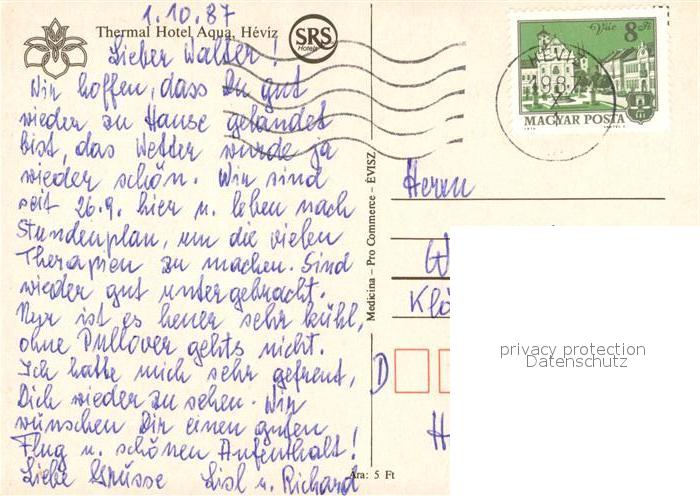 1.10.87
Thermal Hotel Aqua, Hévíz
SRS
Hotels
Lieber Walter!
Wir hoffen, dass Du gut
wieder zu Hause gelandet
bist, das Wetter wurde ja
wieder schön. Wir sind
seit 26.9. hier u. leben nach
Stundenplan, um die vielen
Therapien zu machen. Sind
wieder gut untergebracht.
Nur ist es heuer sehr kühl,
ohne Pullover gehts nicht.
Ich hatte mich sehr gefreut,
Dich wieder zu sehen. Wir
wünschen Dir einen guten
Flug u. schönen Aufenthalt!
Liebe Grüsse Lisl u. Richard
Ára: 5 Ft
Medicina – Pro Commerce – ÉVISZ
Vác 8 Ft
MAGYAR POSTA
HÉVÍZ
198
Herrn
W
Klö
D
H
privacy protection
Datenschutz